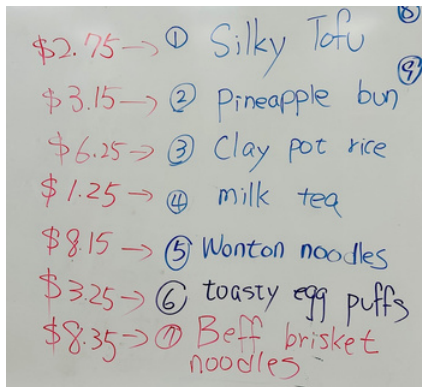 $2.75→ ① Silky Tofu
⑧
$3.15→ ② Pineapple bun
⑨
$6.25→ ③ Clay pot rice
$1.25→ ④ milk tea
$8.15→ ⑤ Wonton noodles
$3.25→ ⑥ toasty egg puffs
$8.35→ ⑦ Beff brisket
noodles